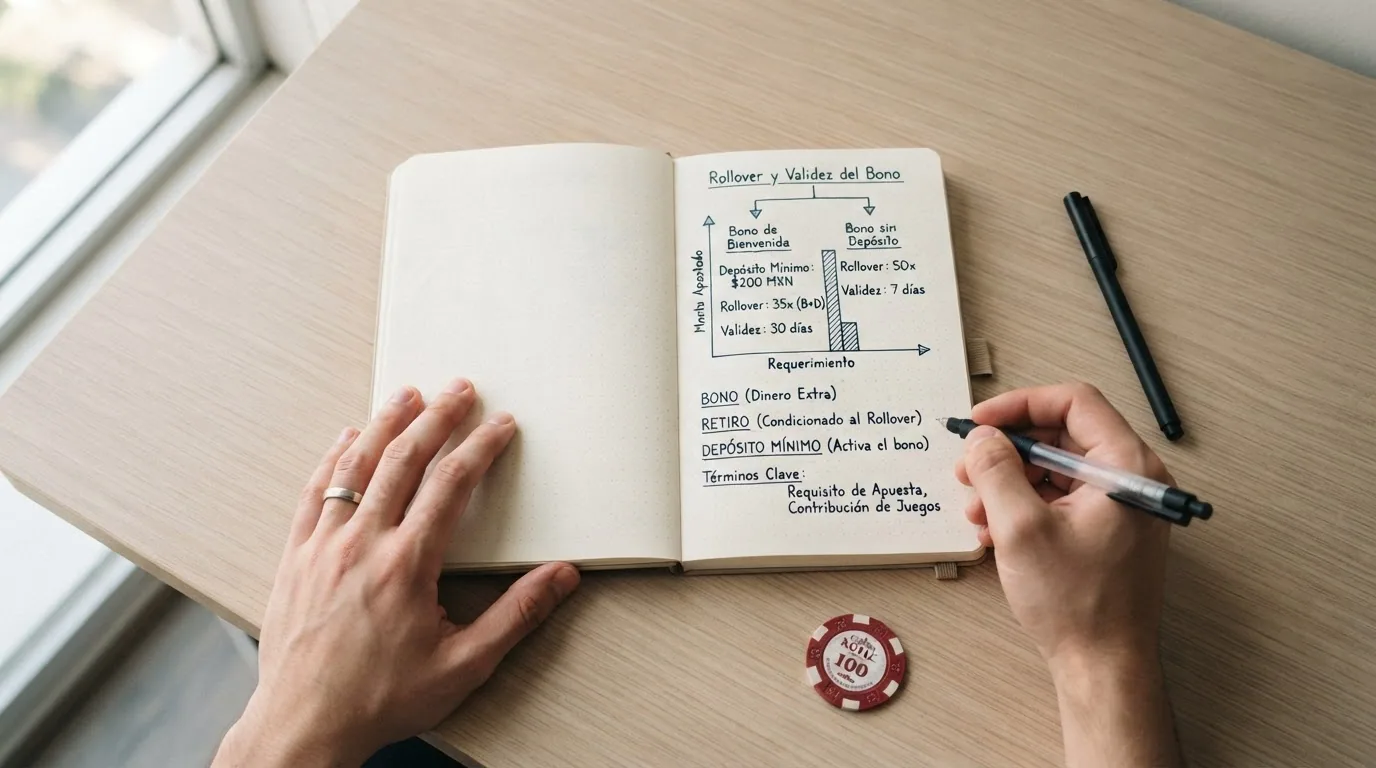 Rollover y Validez del Bono
Bono de
Bienvenida
Depósito Minimo:
$200 MXN
Rollover: 35x (B+D)
Validez: 30 días
Bono sin
Depósito
Rollover: 50x
Validez: 7 días
Requerimiento
BONO (Dinero Extra)
RETIRO (Condicionado al Rollover)
DEPÓSITO MÍNIMO (Activa el bono)
Términos Clave:
Requisito de Apuesta,
Contribución de Juegos
100